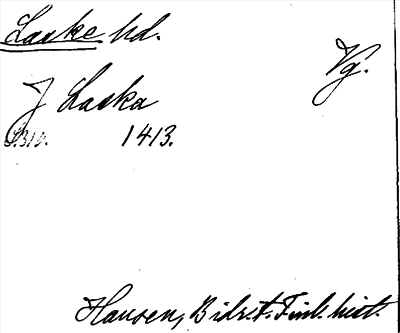 Laske hd.
Vg.
J Laska
S. 310. 1413.
Hausen, Bidr. t. Finl. hist.